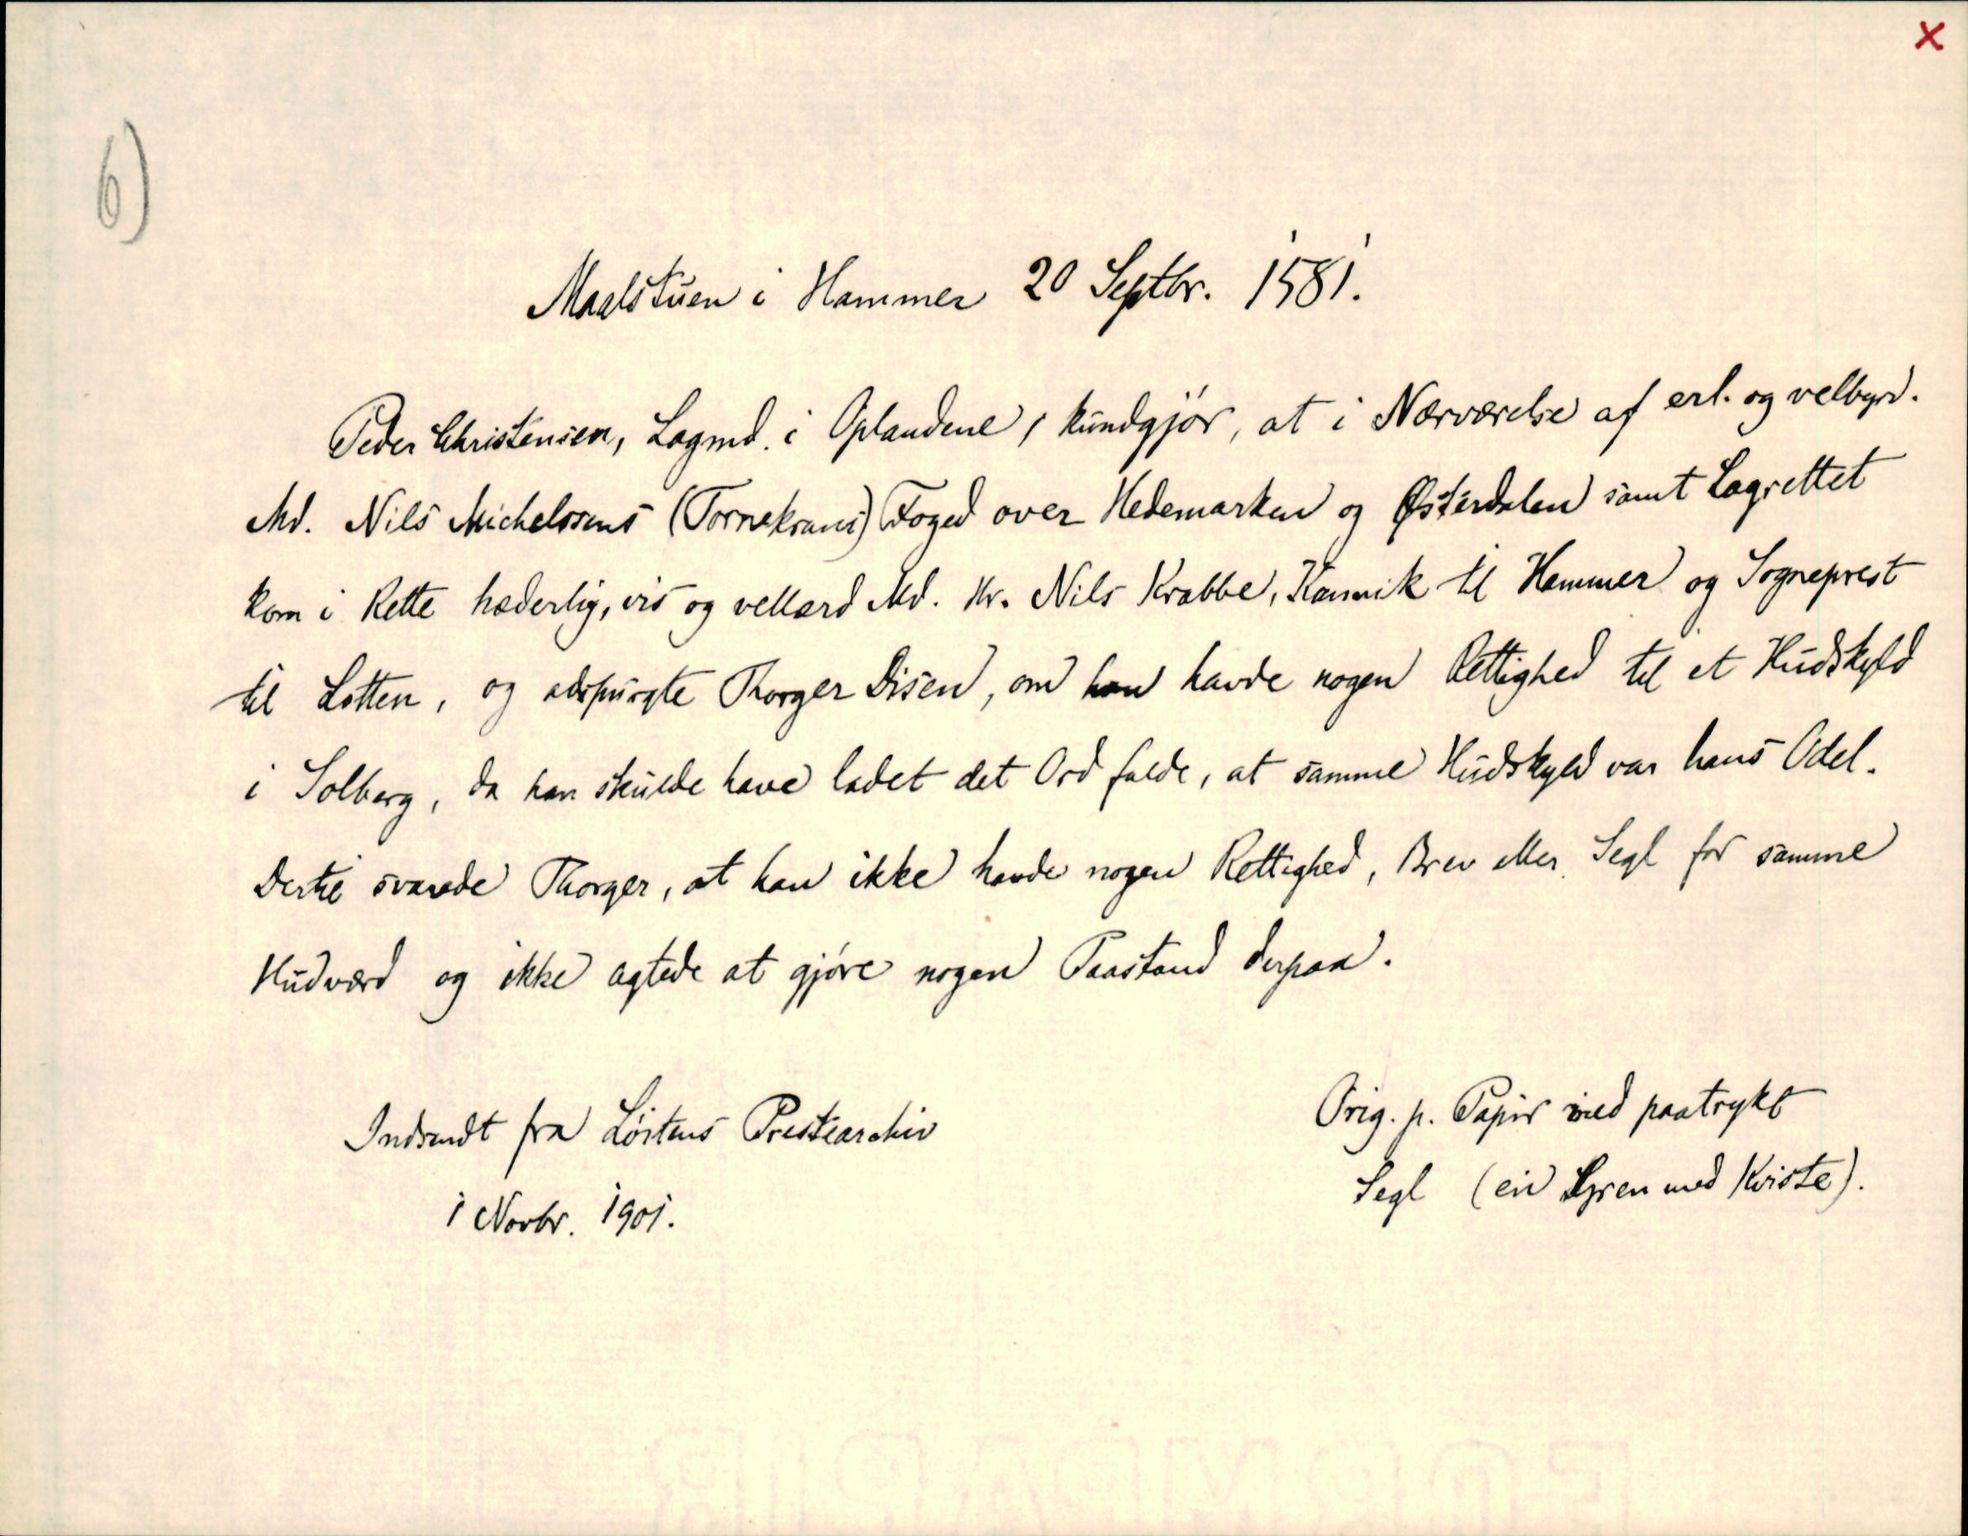 x
6)
Maalstuen i Hammer 20 Septbr. 1581.
Peder Christensen, Lagmd. i Oplandene, kundgjør, at i Nærværelse af erl. og velbyrd.
Md. Nils Michelssens (Tornekrans) Foged over Hedemarken og Østerdalen samt Lagrettet
kom i Rette hæderlig, vis og vellærd Md. Hr. Nils Krabbe, Kannik til Hammer og Sogneprest
til Lotten, og adspurgte Thorger Disen, om han havde nogen Rettighed til et Hudskyld
i Solberg, da han skulde have ladet det Ord falde, at samme Hudskyld var hans Odel.
Dertil svarede Thorger, at han ikke havde nogen Rettighed, Brev eller Segl for samme
Hudværd og ikke agtede at gjøre nogen Paastand derpaa.
Indsendt fra Løitens Prestearchiv
i Novbr. 1901.
Orig. p. Papir med paatrykt
Segl (en Gren med Kviste).